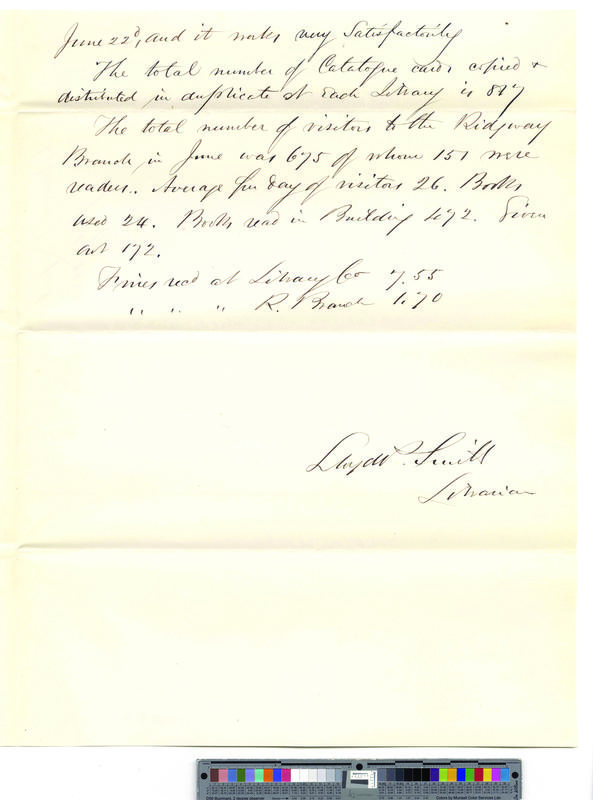 June 22d, and it works very Satisfactorily
The total number of Catalogue cards copied &
distributed in duplicate at each Library is 817
The total number of visitors to the Ridgway
Branch in June was 675 of whom 151 were
readers. Average per day of visitors 26. Books
used 24. Books read in Building 472. Given
out 172.
Fines recd at Library Co 7.55
" " " R. Branch 1.70
Lloyd P. Smith
Librarian